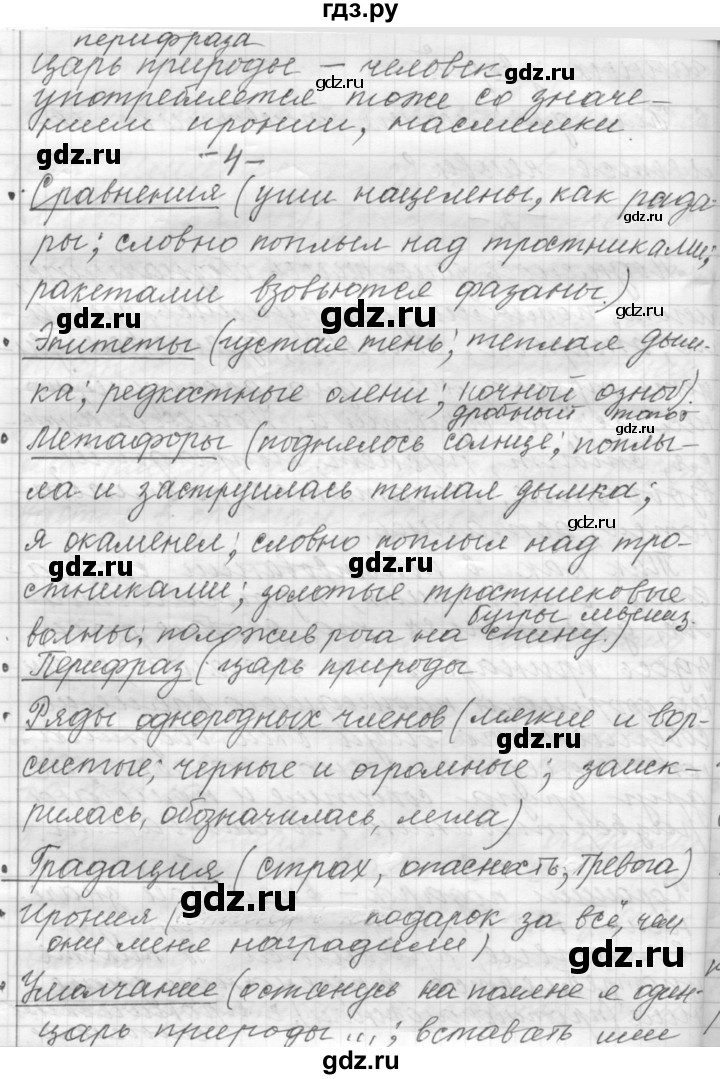 гдз.ру
перифраза
царь природы – человек
gdz.ru
употребляется тоже со значе-
нием иронии, насмешки
gdz.ru
– 4 –
gdz.ru
• Сравнения (уши нацелены, как рада-
gdz.ru
ры; словно поплыл над тростниками;
ракетами взовьются фазаны.)
gdz.ru
gdz.ru
gdz.ru
• Эпитеты (густая тень; теплая дым-
ка; редкостные олени; ночной озноб).
дробный топот
gdz.ru
• Метафоры (поднялось солнце; поплы-
ла и заструилась теплая дымка;
gdz.ru
я окаменел; словно поплыл над тро-
gdz.ru
gdz.ru
стниками; золотые тростниковые
бугры мышц.
волны; положив рога на спину.)
• Перифраз (царь природы
gdz.ru
• Ряды однородных членов (мягкие и вор-
gdz.ru
систые; черные и огромные; заиск-
рилась, обозначилась, легла)
• Градация (страх, опасность, тревога)
gdz.ru
• Ирония ( подарок за всё, чем
они меня наградили)
gdz.ru
• Умолчание (останусь на поляне я один-
gdz.ru
царь природы...; вставать или
gdz.ru